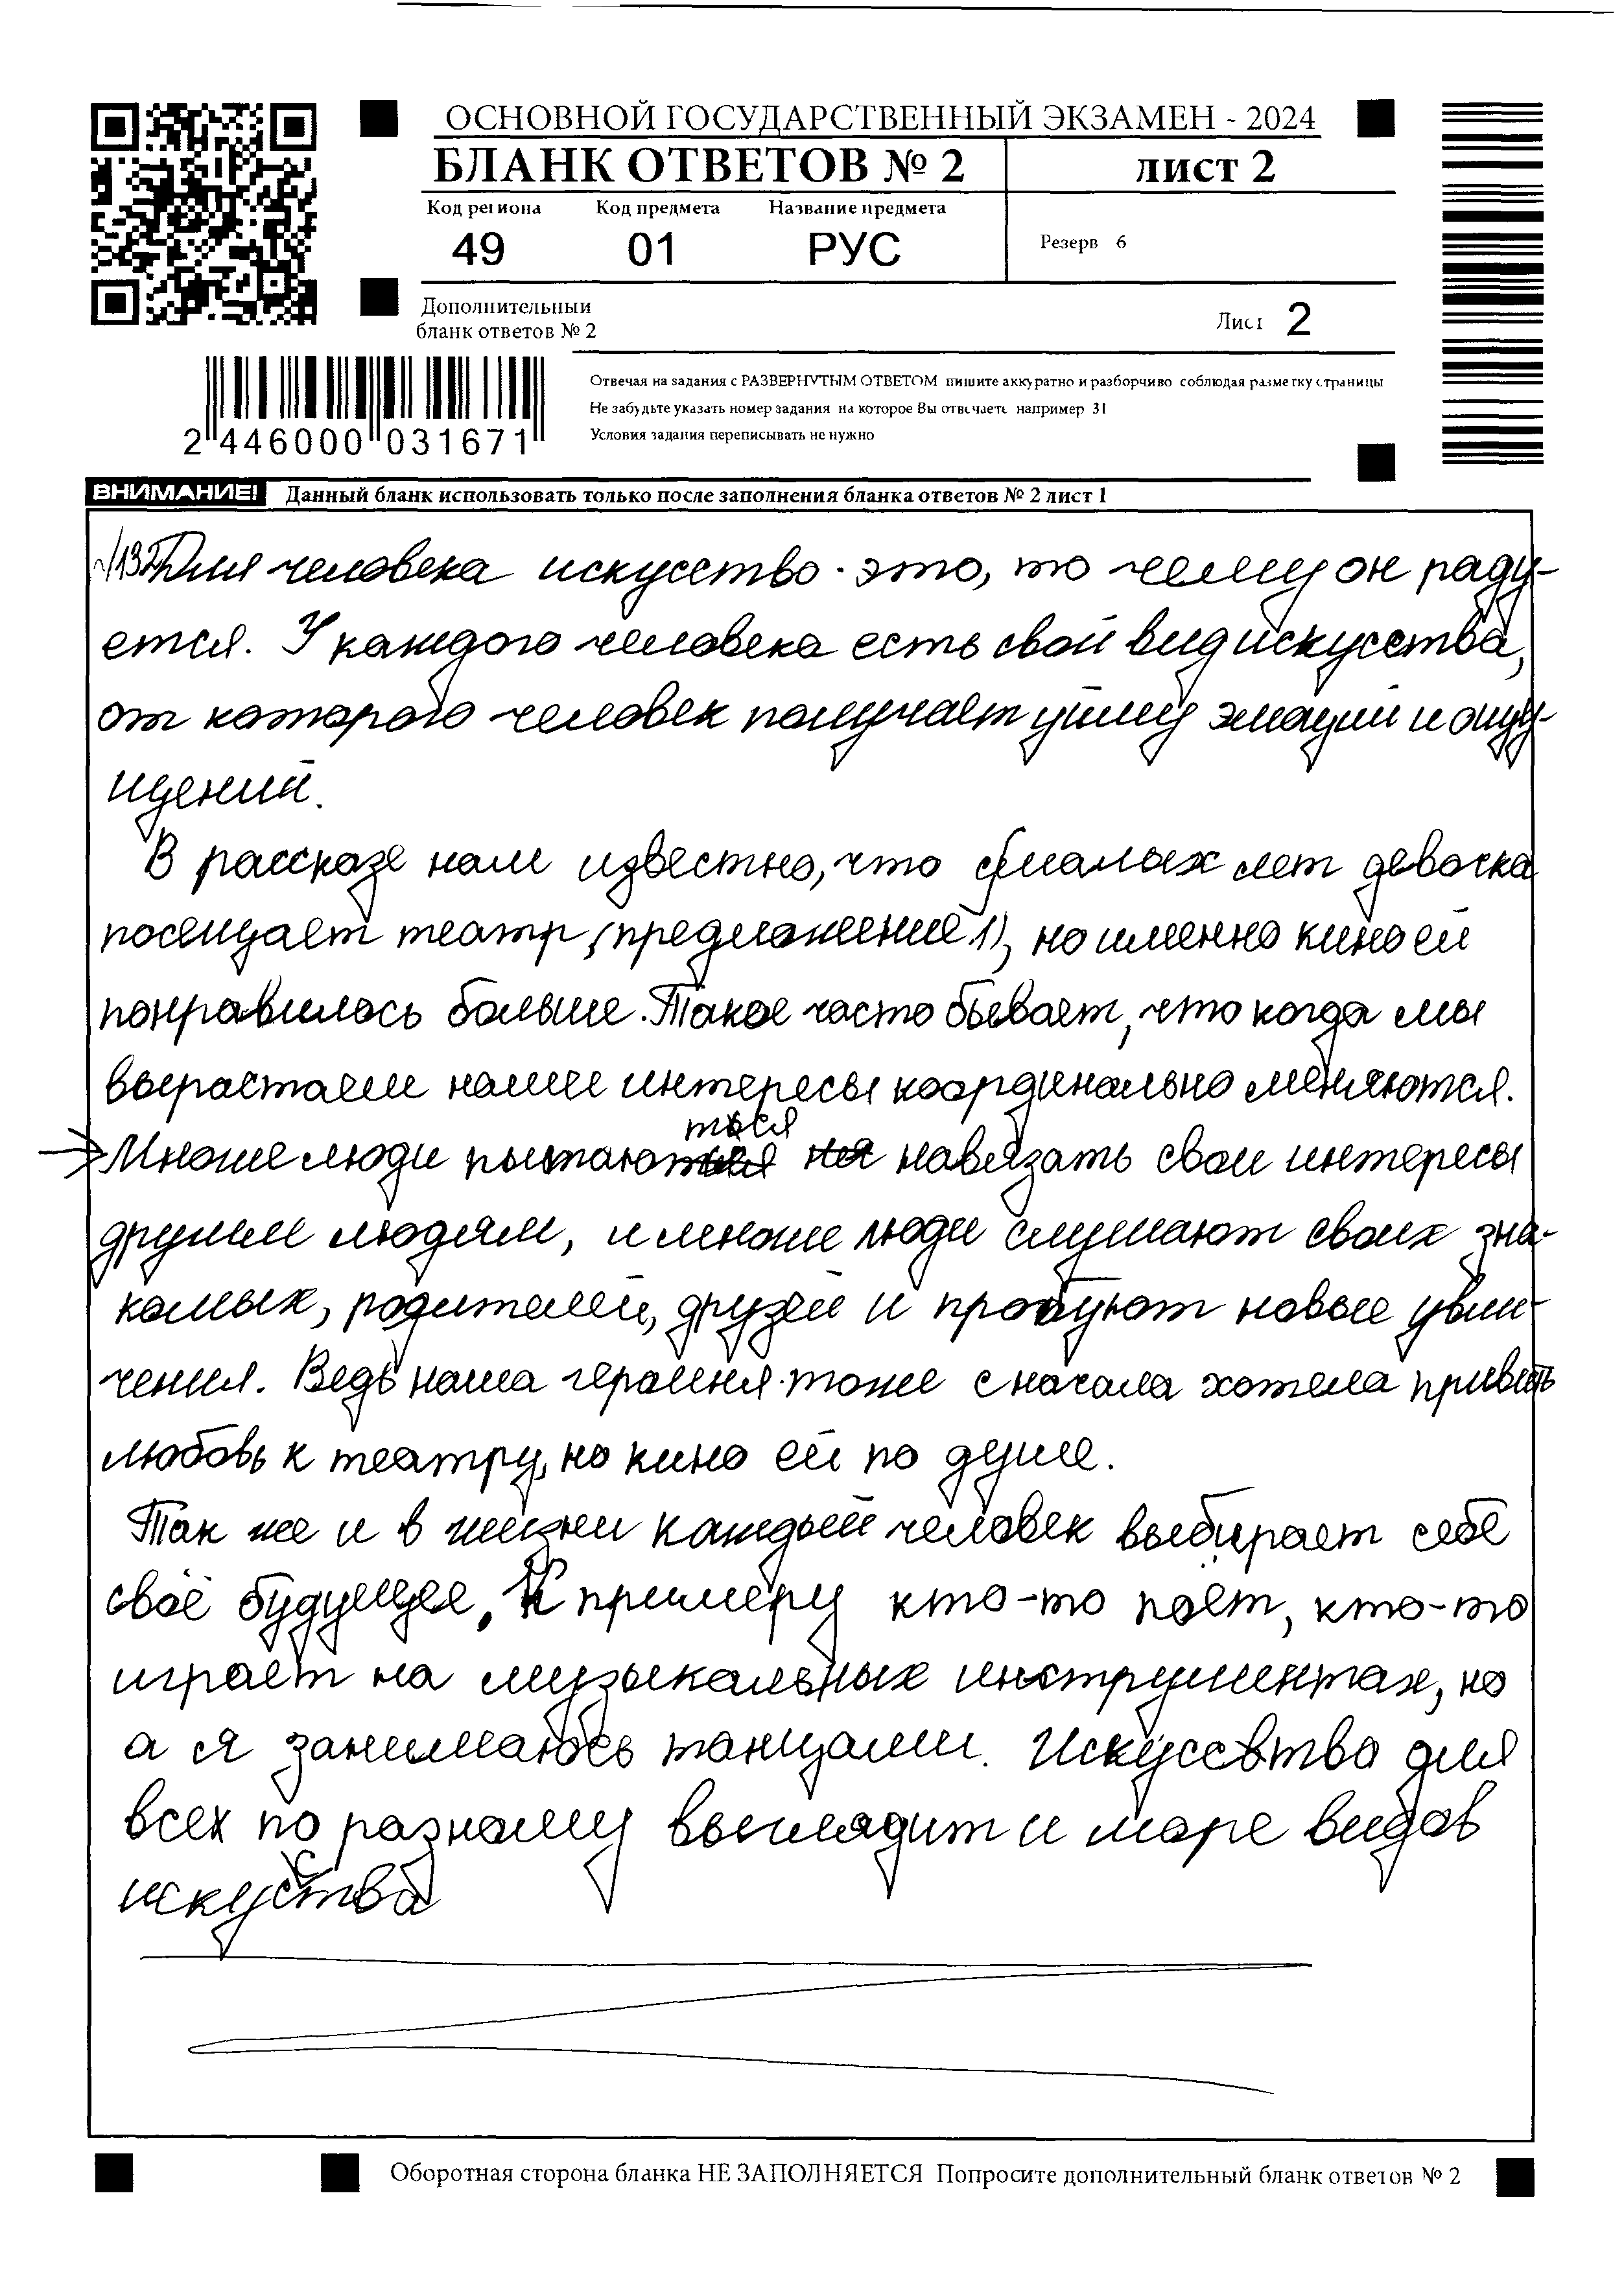 ОСНОВНОЙ ГОСУДАРСТВЕННЫЙ ЭКЗАМЕН - 2024
БЛАНК ОТВЕТОВ № 2
ЛИСТ 2
Код региона Код предмета Название предмета
49 01 РУС
Резерв 6
Дополнительный
бланк ответов № 2
Лист 2
2 446000 031671
Отвечая на задания с РАЗВЕРНУТЫМ ОТВЕТОМ пишите аккуратно и разборчиво соблюдая разметку страницы
Не забудьте указать номер задания на которое Вы отвечаете например 31
Условия задания переписывать не нужно
ВНИМАНИЕ! Данный бланк использовать только после заполнения бланка ответов № 2 лист 1
Для человека искусство - это, то чему он раду-
ется. У каждого человека есть свой вид искусства,
от которого человек получает уйму эмоций и ощу-
щений.
В рассказе нам известно, что с малых лет девочка
посещает театр (предложение 1), но именно кино ей
понравилось больше. Такое часто бывает, что когда мы
вырастаем наши интересы координально меняются.
Многие люди пытаются навязать свои интересы
другим людям, и многие люди слушают своих зна-
комых, родителей, друзей и пробуют новые увле-
чения. Ведь наша героиня тоже сначала хотела привить
любовь к театру, но кино ей по душе.
Так же и в жизни каждый человек выбирает себе
своё будущее. К примеру кто-то поёт, кто-то
играет на музыкальных инструментах, но
а я занимаюсь танцами. Искусство для
всех по разному выглядит и море видов
искусства
Оборотная сторона бланка НЕ ЗАПОЛНЯЕТСЯ Попросите дополнительный бланк ответов № 2